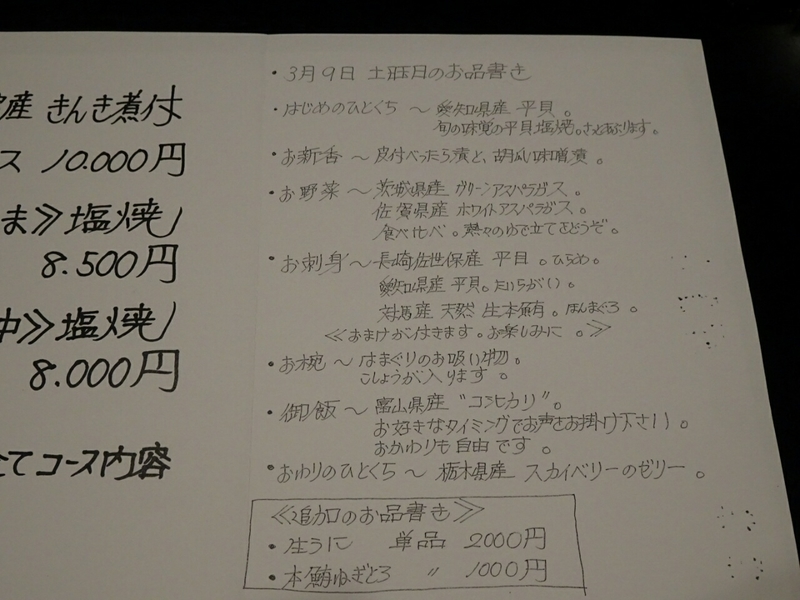 産 きんき煮付
ス 10.000円
ま≫塩焼
8.500円
中≫塩焼
8.000円
てコース内容
・3月9日 土曜日のお品書き
・はじめのひとくち 〜 愛知県産 平貝。
旬の味覚の平貝塩焼。さっとあぶります。
・お新香 〜 皮付べったら漬と、胡瓜味噌漬。
・お野菜 〜 茨城県産 グリーンアスパラガス。
佐賀県産 ホワイトアスパラガス。
食べ比べ。熱々のゆで立てをどうぞ。
・お刺身 〜 長崎佐世保産 平目。ひらめ。
愛知県産 平貝。たいらがい。
対馬産 天然 生本鮪。ほんまぐろ。
≪おまけが付きます。お楽しみに。≫
・お椀 〜 はまぐりのお吸い物。
こしょうが入ります。
・御飯 〜 富山県産 "コシヒカリ"。
お好きなタイミングでお声をお掛け下さい。
おかわりも自由です。
・おわりのひとくち 〜 栃木県産 スカイベリーのゼリー。
≪追加のお品書き≫
・生うに 単品 2000円
・本鮪ねぎとろ 〃 1000円